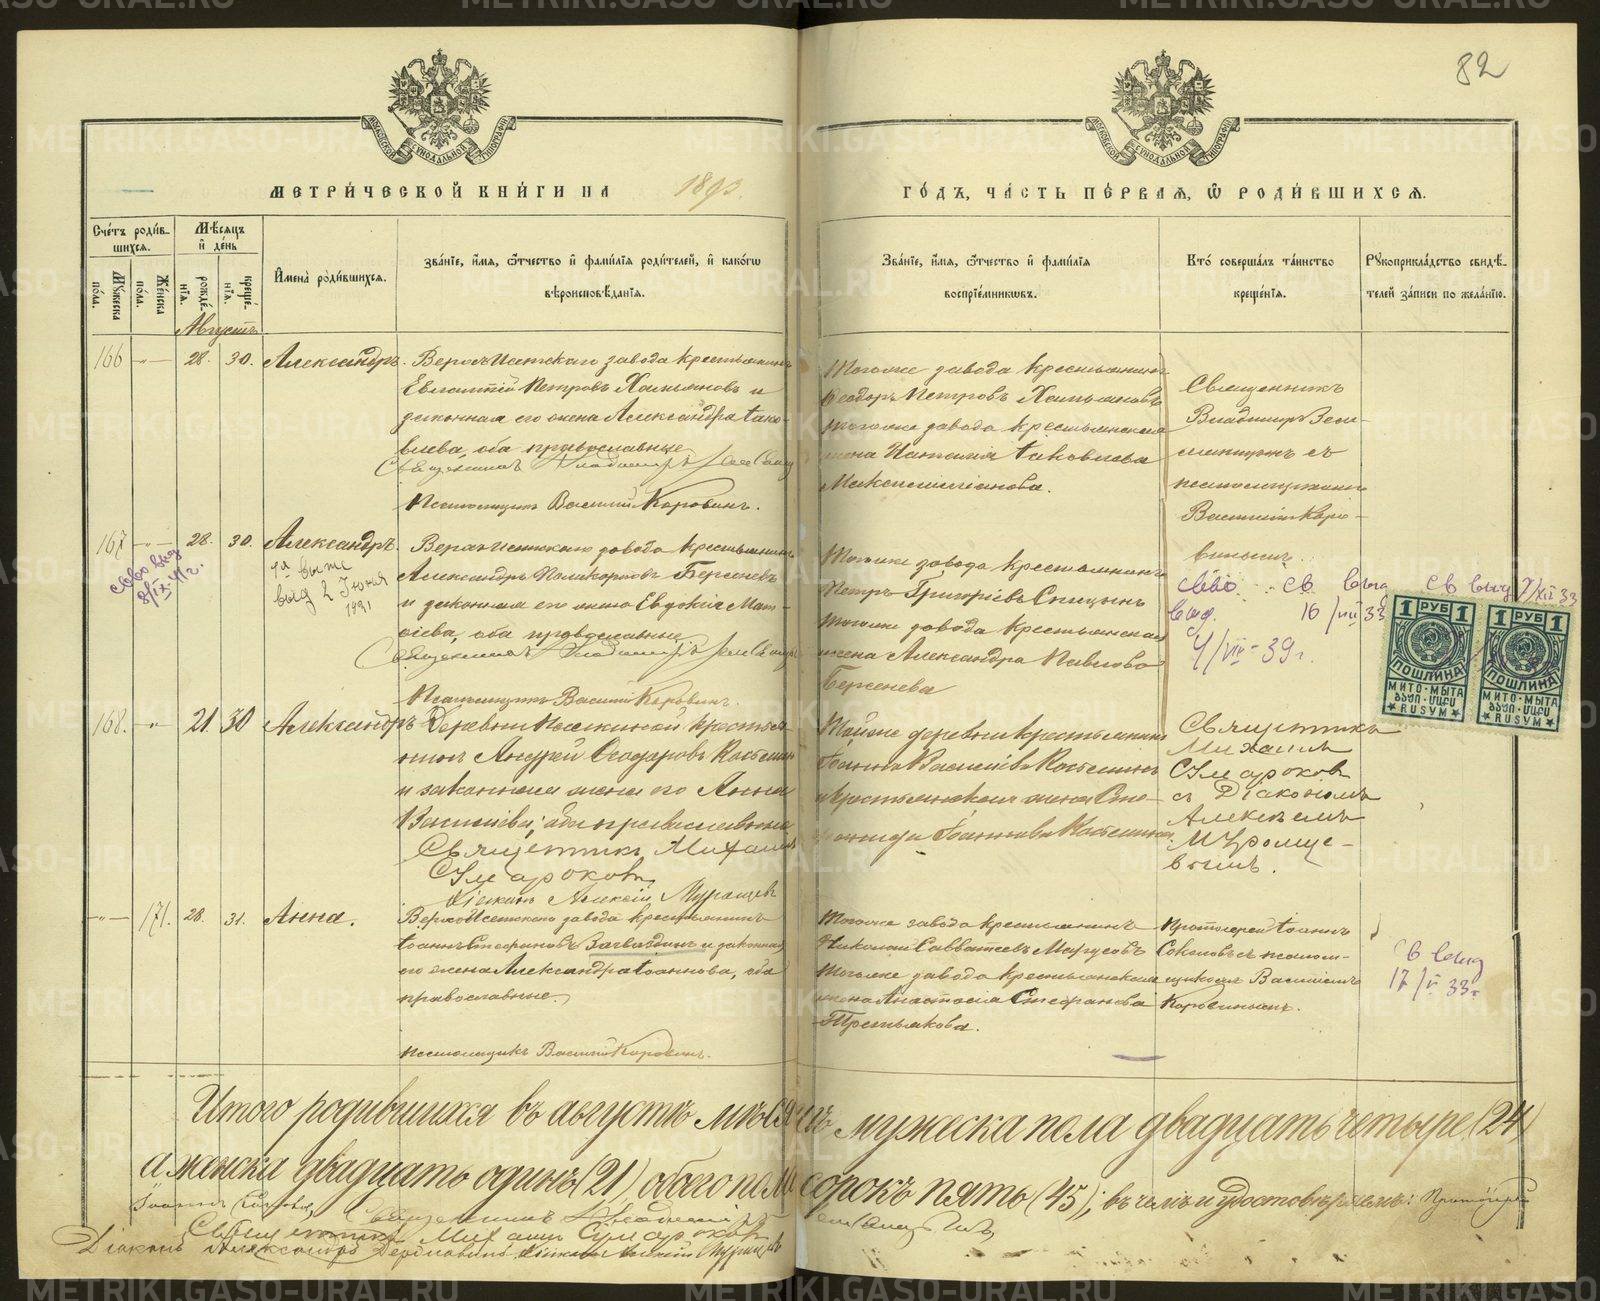 82
МОСКОВСКОЙ СѴНОДАЛЬНОЙ ТИПОГРАФІИ
МОСКОВСКОЙ СѴНОДАЛЬНОЙ ТИПОГРАФІИ
МЕТРИ́ЧЕСКОЙ КНИ́ГИ НА 1893
ГО́ДЪ, ЧА́СТЬ ПЕ́РВАЯ, Ѡ РОДИ́ВШИХСЯ.
Сче́тъ роди́в-
шихся.
Мужеска по́ла.
Же́нска по́ла.
Мѣ́сяцъ
и де́нь
рожде́нїя.
креще́нїя.
Имена̀ роди́вшихся.
Зва́нїе, и́мя, ѻ́тчество и фами́лїя роди́телей, и како́гѡ
вѣроисповѣ́данїя.
Зва́нїе, и́мя, ѻ́тчество и фами́лїя
воспрїе́мникѡвъ.
Кто̀ соверша́лъ та́инство
креще́нїя.
Рукоприкла́дство свидѣ́-
телей за́писи по жела́нїю.
Августъ
166 -"- 28. 30. Александръ.
Верхъ-Исетскаго завода крестьянинъ
Евлампій Петровъ Хамьяновъ и
законная его жена Александра Іако-
влева, оба православные
Священникъ Владиміръ
Псаломщикъ Василій Коровинъ.
Тогоже завода крестьянинъ
Ѳеодоръ Петровъ Хамьяновъ
тогоже завода крестьянская
жена Наталія Іаковлева
Максимиліанова.
Священникъ
Владиміръ Зем-
ляницынъ съ
псаломщикомъ
Василіемъ Коро-
винымъ.
167 -"- 28. 30. Александръ.
Верхъ-Исетскаго завода крестьянинъ
Александръ Поликарповъ Берсеневъ
и законная его жена Евдокія Мат-
ѳіева, оба православные.
Священникъ Владиміръ
Псаломщикъ Василій Коровинъ.
выд 2 Июня
1931
8/IX-41 г.
Тогоже завода крестьянинъ
Петръ Григоріевъ Спицынъ
тогоже завода крестьянская
жена Александра Павлова
Берсенева
св выд
16/VIII 33
выд.
4/VII-39 г.
св выд 7/XII 33
1 РУБ 1
ПОШЛИНА
МИТО·МЫТА
RUSYM
1 РУБ 1
ПОШЛИНА
МИТО·МЫТА
RUSYM
168. -"- 21. 30 Александръ
Деревни крестья-
нинъ Андрей Ѳеодоровъ
и законная жена его Анна
Василіева; оба православные
Священникъ Михаилъ
Сумароковъ
Діаконъ Алексій
Тойже деревни крестьянинъ
Іоаннъ Василіевъ
и крестьянская жена Сте-
панида Іоаннова
Священникъ
Михаилъ
Сумароковъ
съ Діакономъ
Алексѣемъ
-"- 171. 28. 31. Анна.
Верхъ-Исетскаго завода крестьянинъ
Іоаннъ Стефановъ и законная
его жена Александра Іоаннова, оба
православные.
Псаломщикъ Василій Коровинъ.
Тогоже завода крестьянинъ
Николай Савватіевъ
тогоже завода крестьянская
жена Анастасія Стефанова
Третьякова.
Протоіерей Іоаннъ
Соколовъ съ псалом-
щикомъ Василіемъ
Коровинымъ.
св выд
17/V 33 г
Итого родившихся въ августѣ мѣсяцѣ мужеска пола двадцать четыре (24)
а женска двадцать одинъ (21), обоего пола сорокъ пять (45); въ чемъ и удостовѣряемъ: Протоіерей
Іоаннъ Соколовъ,
Священникъ Владиміръ
Священникъ Михаилъ Сумароковъ
Діаконъ Александръ Діаконъ Алексій
METRIKI.GASO-URAL.RU